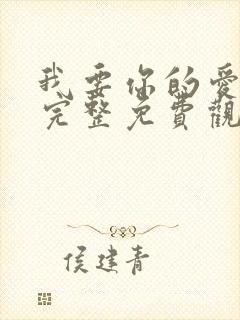 我要你的愛
完整免費觀
侯建青